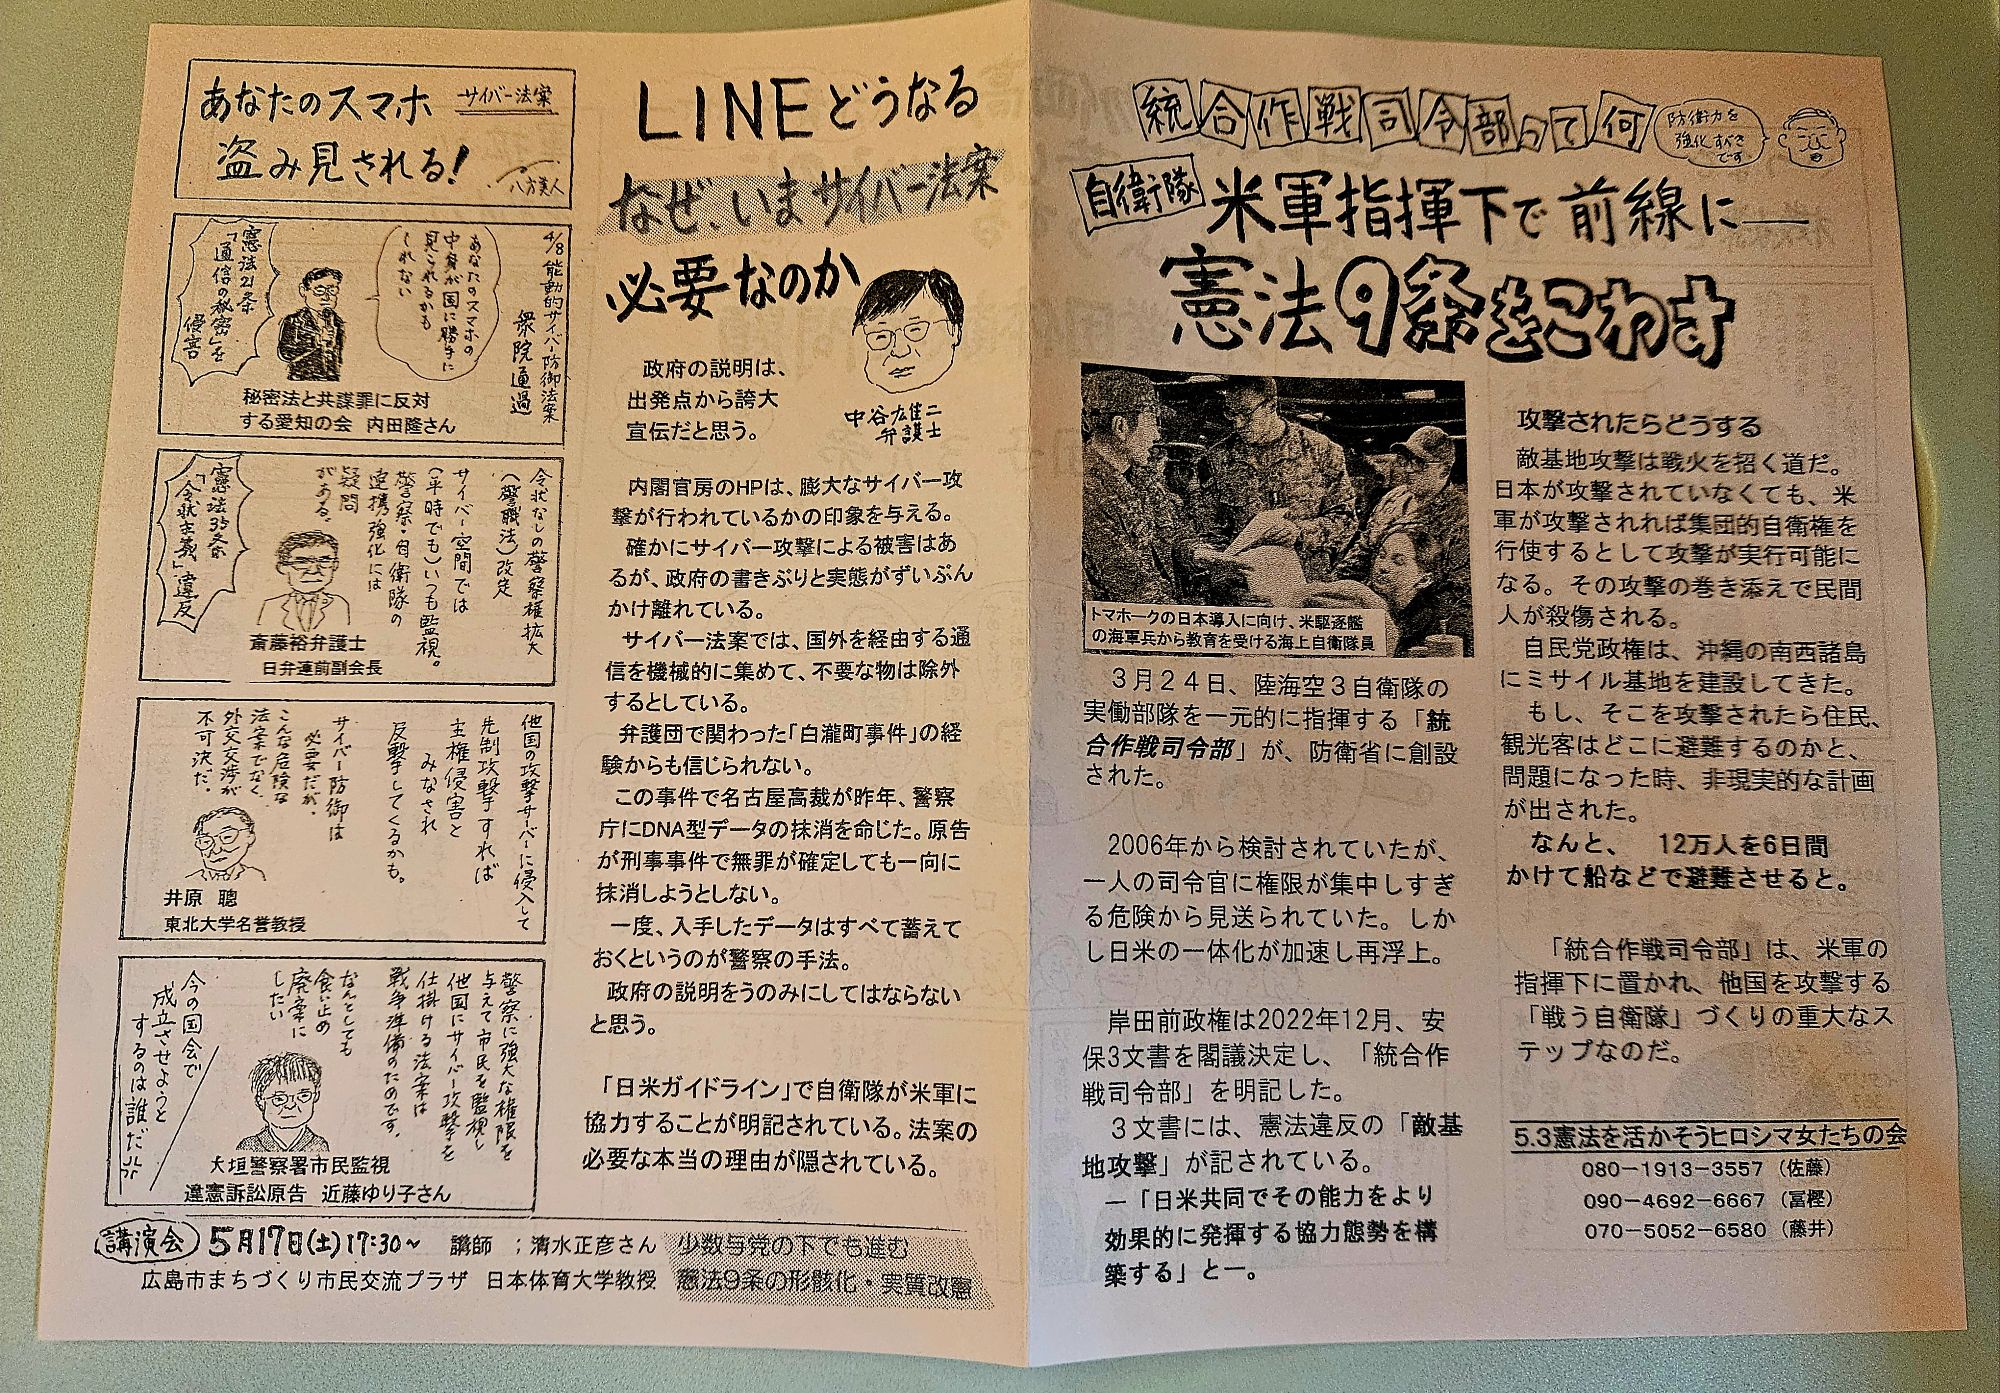 あなたのスマホ
サイバー法案
盗み見される!
八方美人
4/8能動的サイバー防御法案
衆院通過
あなたのスマホの
中身が国に勝手に
見られるかも
しれない
憲法21条
「通信の秘密」を
侵害
秘密法と共謀罪に反対
する愛知の会 内田隆さん
令状なしの警察権拡大
(警職法)改定
サイバー空間では
(平時でも)いつも監視。
警察・自衛隊の
連携強化には
疑問
がある。
憲法35条
「令状主義」違反
斎藤裕弁護士
日弁連前副会長
他国の攻撃サーバーに侵入して
先制攻撃すれば
主権侵害と
みなされ
反撃してくるかも。
サイバー防御は
必要だが、
こんな危険な
法案でなく、
外交交渉が
不可決だ。
井原 聰
東北大学名誉教授
警察に強大な権限を
与えて市民を監視し
他国にサイバー攻撃を
仕掛ける法案は
戦争準備のためです。
なんとしても
食い止め
廃案に
したい
今の国会で
成立させようと
するのは誰だ
大垣警察署市民監視
違憲訴訟原告 近藤ゆり子さん
LINEどうなる
なぜ、いまサイバー法案
必要なのか
中谷雄二
弁護士
政府の説明は、
出発点から誇大
宣伝だと思う。
内閣官房のHPは、膨大なサイバー攻
撃が行われているかの印象を与える。
確かにサイバー攻撃による被害はあ
るが、政府の書きぶりと実態がずいぶん
かけ離れている。
サイバー法案では、国外を経由する通
信を機械的に集めて、不要な物は除外
するとしている。
弁護団で関わった「白瀧町事件」の経
験からも信じられない。
この事件で名古屋高裁が昨年、警察
庁にDNA型データの抹消を命じた。原告
が刑事事件で無罪が確定しても一向に
抹消しようとしない。
一度、入手したデータはすべて蓄えて
おくというのが警察の手法。
政府の説明をうのみにしてはならない
と思う。
「日米ガイドライン」で自衛隊が米軍に
協力することが明記されている。法案の
必要な本当の理由が隠されている。
講演会 5月17日(土)17:30~ 講師 ;清水正彦さん 少数与党の下でも進む
広島市まちづくり市民交流プラザ 日本体育大学教授 憲法9条の形骸化・実質改憲
統合作戦司令部って何
防衛力を
強化すべき
です
自衛隊 米軍指揮下で前線に―
憲法9条をこわす
トマホークの日本導入に向け、米駆逐艦
の海軍兵から教育を受ける海上自衛隊員
3月24日、陸海空3自衛隊の
実働部隊を一元的に指揮する「統
合作戦司令部」が、防衛省に創設
された。
2006年から検討されていたが、
一人の司令官に権限が集中しすぎ
る危険から見送られていた。しか
し日米の一体化が加速し再浮上。
岸田前政権は2022年12月、安
保3文書を閣議決定し、「統合作
戦司令部」を明記した。
3文書には、憲法違反の「敵基
地攻撃」が記されている。
―「日米共同でその能力をより
効果的に発揮する協力態勢を構
築する」と―。
攻撃されたらどうする
敵基地攻撃は戦火を招く道だ。
日本が攻撃されていなくても、米
軍が攻撃されれば集団的自衛権を
行使するとして攻撃が実行可能に
なる。その攻撃の巻き添えで民間
人が殺傷される。
自民党政権は、沖縄の南西諸島
にミサイル基地を建設してきた。
もし、そこを攻撃されたら住民、
観光客はどこに避難するのかと、
問題になった時、非現実的な計画
が出された。
なんと、 12万人を6日間
かけて船などで避難させると。
「統合作戦司令部」は、米軍の
指揮下に置かれ、他国を攻撃する
「戦う自衛隊」づくりの重大なス
テップなのだ。
5.3憲法を活かそうヒロシマ女たちの会
080-1913-3557(佐藤)
090-4692-6667(冨樫)
070-5052-6580(藤井)